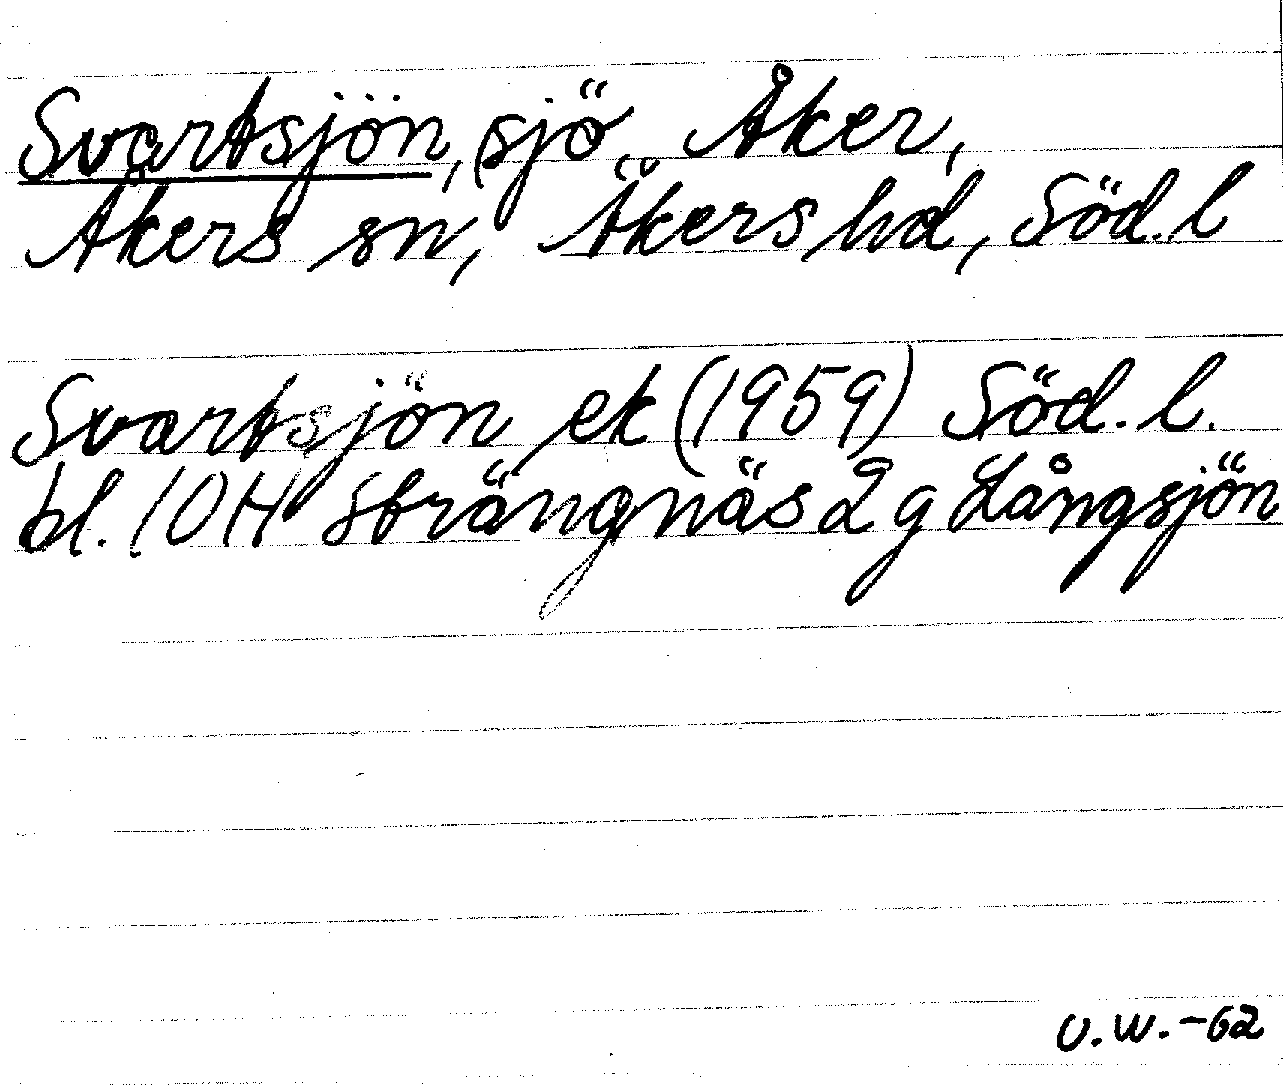 Svartsjön, sjö, Åker,
Åkers sn, Åkers hd, Söd. l
Svartsjön ek (1959) Söd. l.
bl. 10H Strängnäs 2g Långsjön
U.W.-62